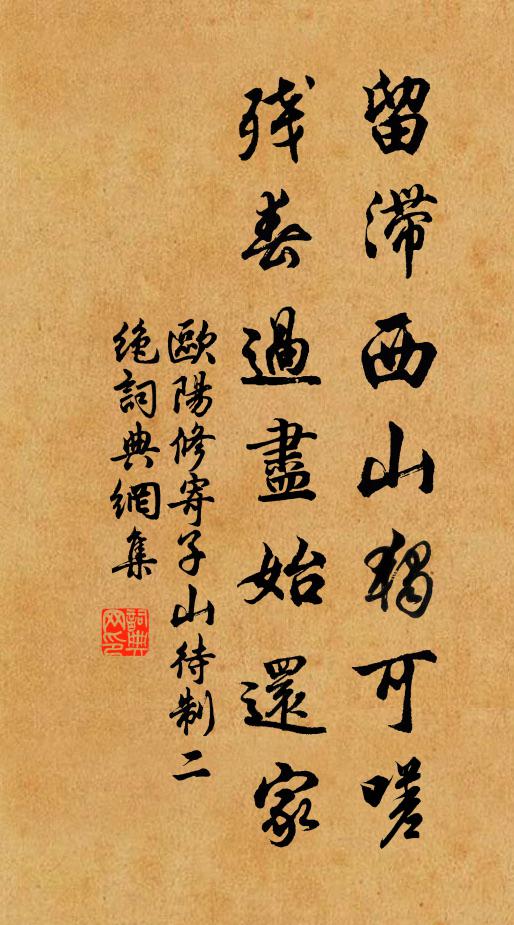 留滯西山獨可嗟
殘春過盡始還家
歐陽修寄子山待制二
絶詞典網集
詞典
网印